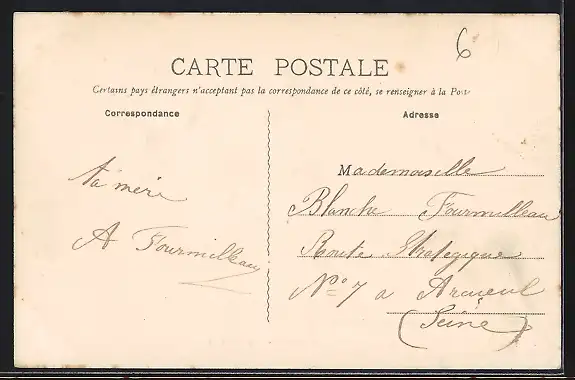 6
CARTE POSTALE
Certains pays étrangers n'acceptant pas la correspondance de ce côté, se renseigner à la Poste
Correspondance
Adresse
ta mère
A Fourmilleau
Mademoiselle
Blanche Fourmilleau
Route Stratégique
Nº 7 a Arcueil
(Seine)